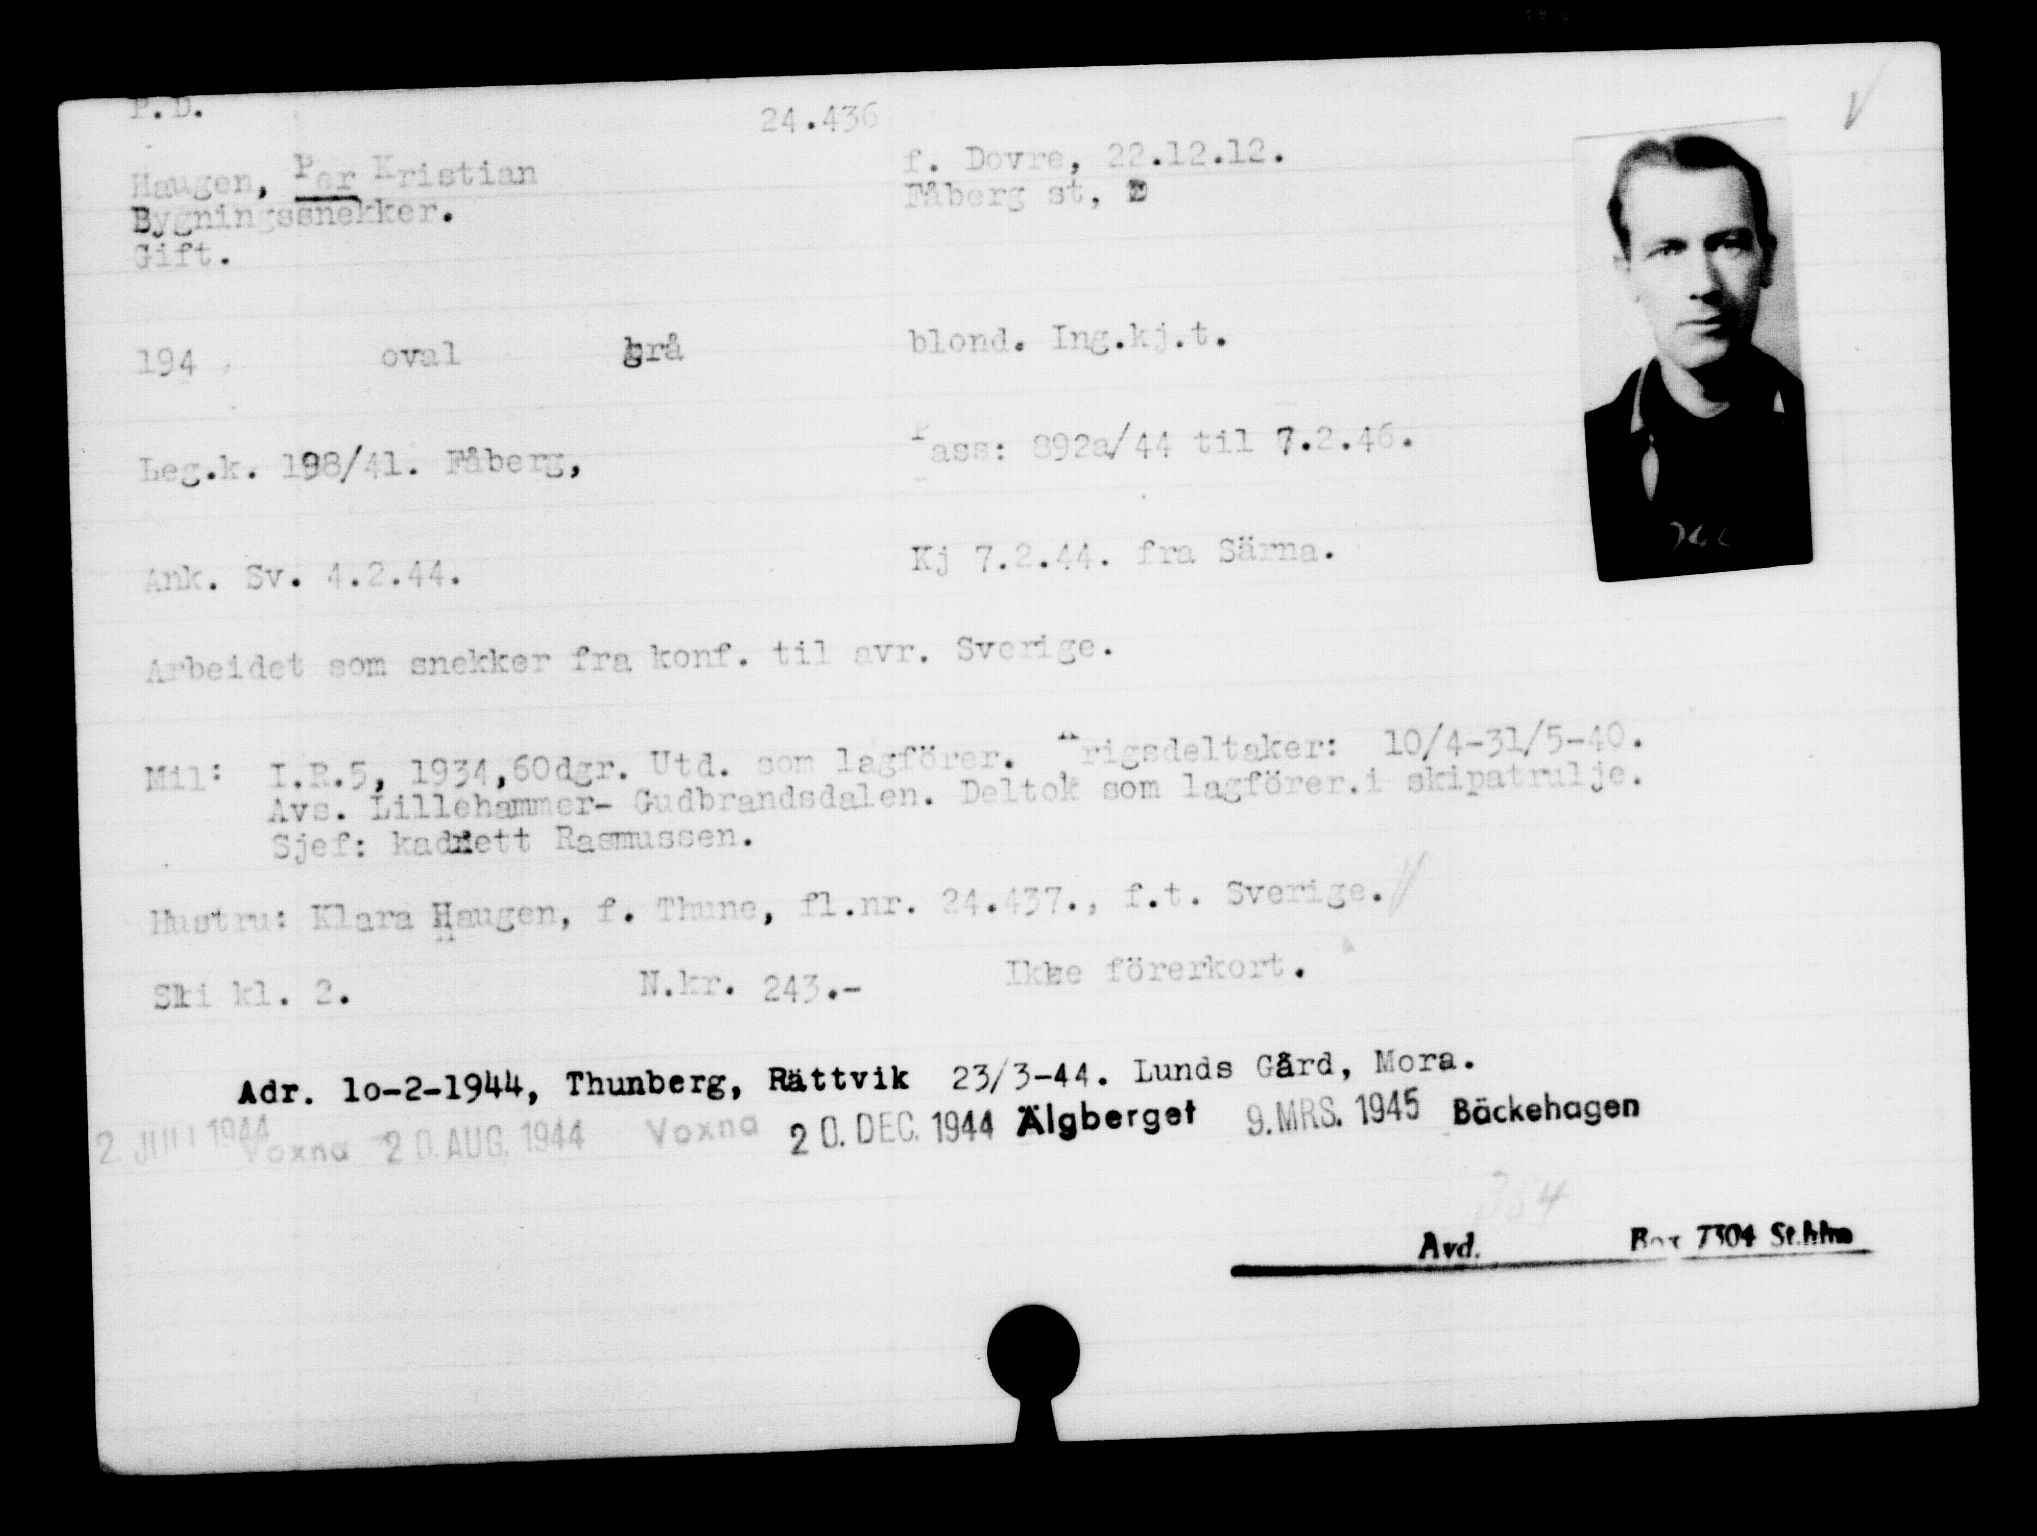 P.D.
24.436
Haugen, Per Kristian
f. Dovre, 22.12.12.
Bygningssnekker.
Fåberg st,
Gift.
194 oval grå blond. Ing.kj.t.
Leg.k. 198/41. Fåberg,
Pass: 892a/44 til 7.2.46.
Ank. Sv. 4.2.44.
Kj 7.2.44. fra Särna.
Arbeidet som snekker fra konf. til avr. Sverige.
Mil: I.R.5, 1934,60dgr. Utd. som lagförer. rigsdeltaker: 10/4-31/5-40.
Avs. Lillehammer- Gudbrandsdalen. Deltok som lagförer.i skipatrulje.
Sjef: kadett Rasmussen.
Hustru: Klara Haugen, f. Thune, fl.nr. 24.437., f.t. Sverige.
Ski kl. 2. N.kr. 243.- Ikke förerkort.
Adr. 1o-2-1944, Thunberg, Rättvik 23/3-44. Lunds Gård, Mora.
2. 1944 Voxna 20. AUG. 1944 Voxna 20. DEC. 1944 Älgberget 9. MRS. 1945 Bäckehagen
Avd. Box 7304 St.hlm